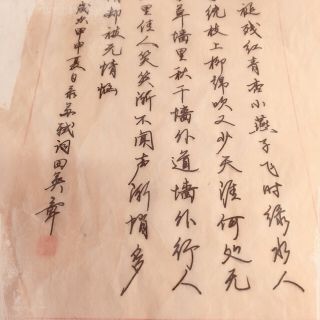 褪残红青杏小燕子飞时绿水人
绕枝上柳绵吹又少天涯何处无
草墙里秋千墙外道墙外行人
里佳人笑笑渐不闻声渐悄多
却被无情恼
岁次甲申夏日录苏轼词田英章